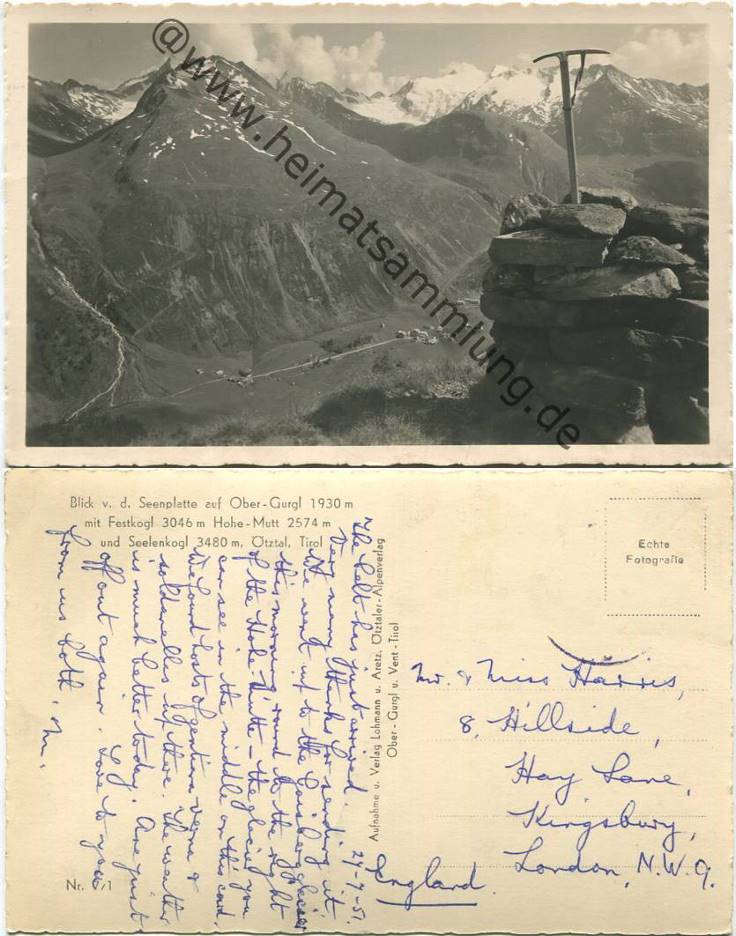 @www.heimatsammlung.de
Blick v. d. Seenplatte auf Ober-Gurgl 1930 m
mit Festkogl 3046 m Hohe-Mutt 2574 m
und Seelenkogl 3480 m, Ötztal, Tirol
Echte
Fotografie
Aufnahme u. Verlag Lohmann u. Aretz. Ötztaler-Alpenverlag
Ober-Gurgl u. Vent-Tirol
24-7-51.
The belt has just arrived.
Very many thanks for sending it
We went up to the Gaisbergglacier
this morning, round to the right
of the Hohe Mutte - the glacier you
can see in the middle on this card.
We found hosts of gentiana verna &
soldanellas up there. The weather
is much better today. Are just
off out again. Love to you
from us both. M.
Mr. & Miss Harris,
8, Hillside,
Hay Lane,
Kingsbury,
London, N.W.9.
England.
Nr.